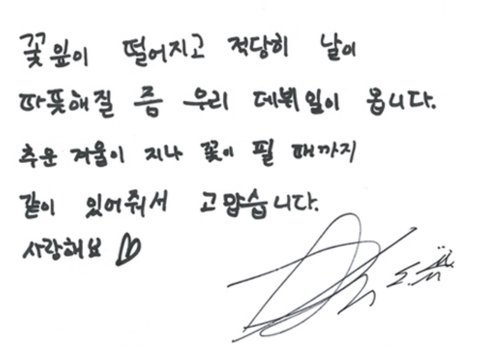 꽃잎이 떨어지고 적당히 날이
따뜻해질 즘 우리 데뷔일이 옵니다.
추운 겨울이 지나 꽃이 필 때까지
같이 있어줘서 고맙습니다.
사랑해요 ♡